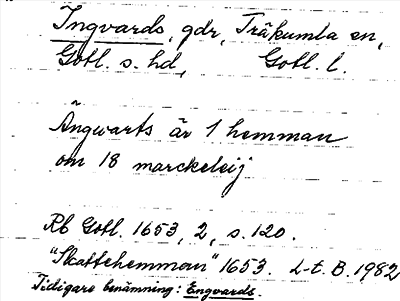 Ingvards, gdr, Träkumla sn,
Gotl. s. hd, Gotl. l.
Ängwarts är 1 hemman
om 18 marckeleij
Rb Gotl. 1653, 2, s. 120.
"Skattehemman" 1653. L-t. B. 1982
Tidigare benämning: Engvards.